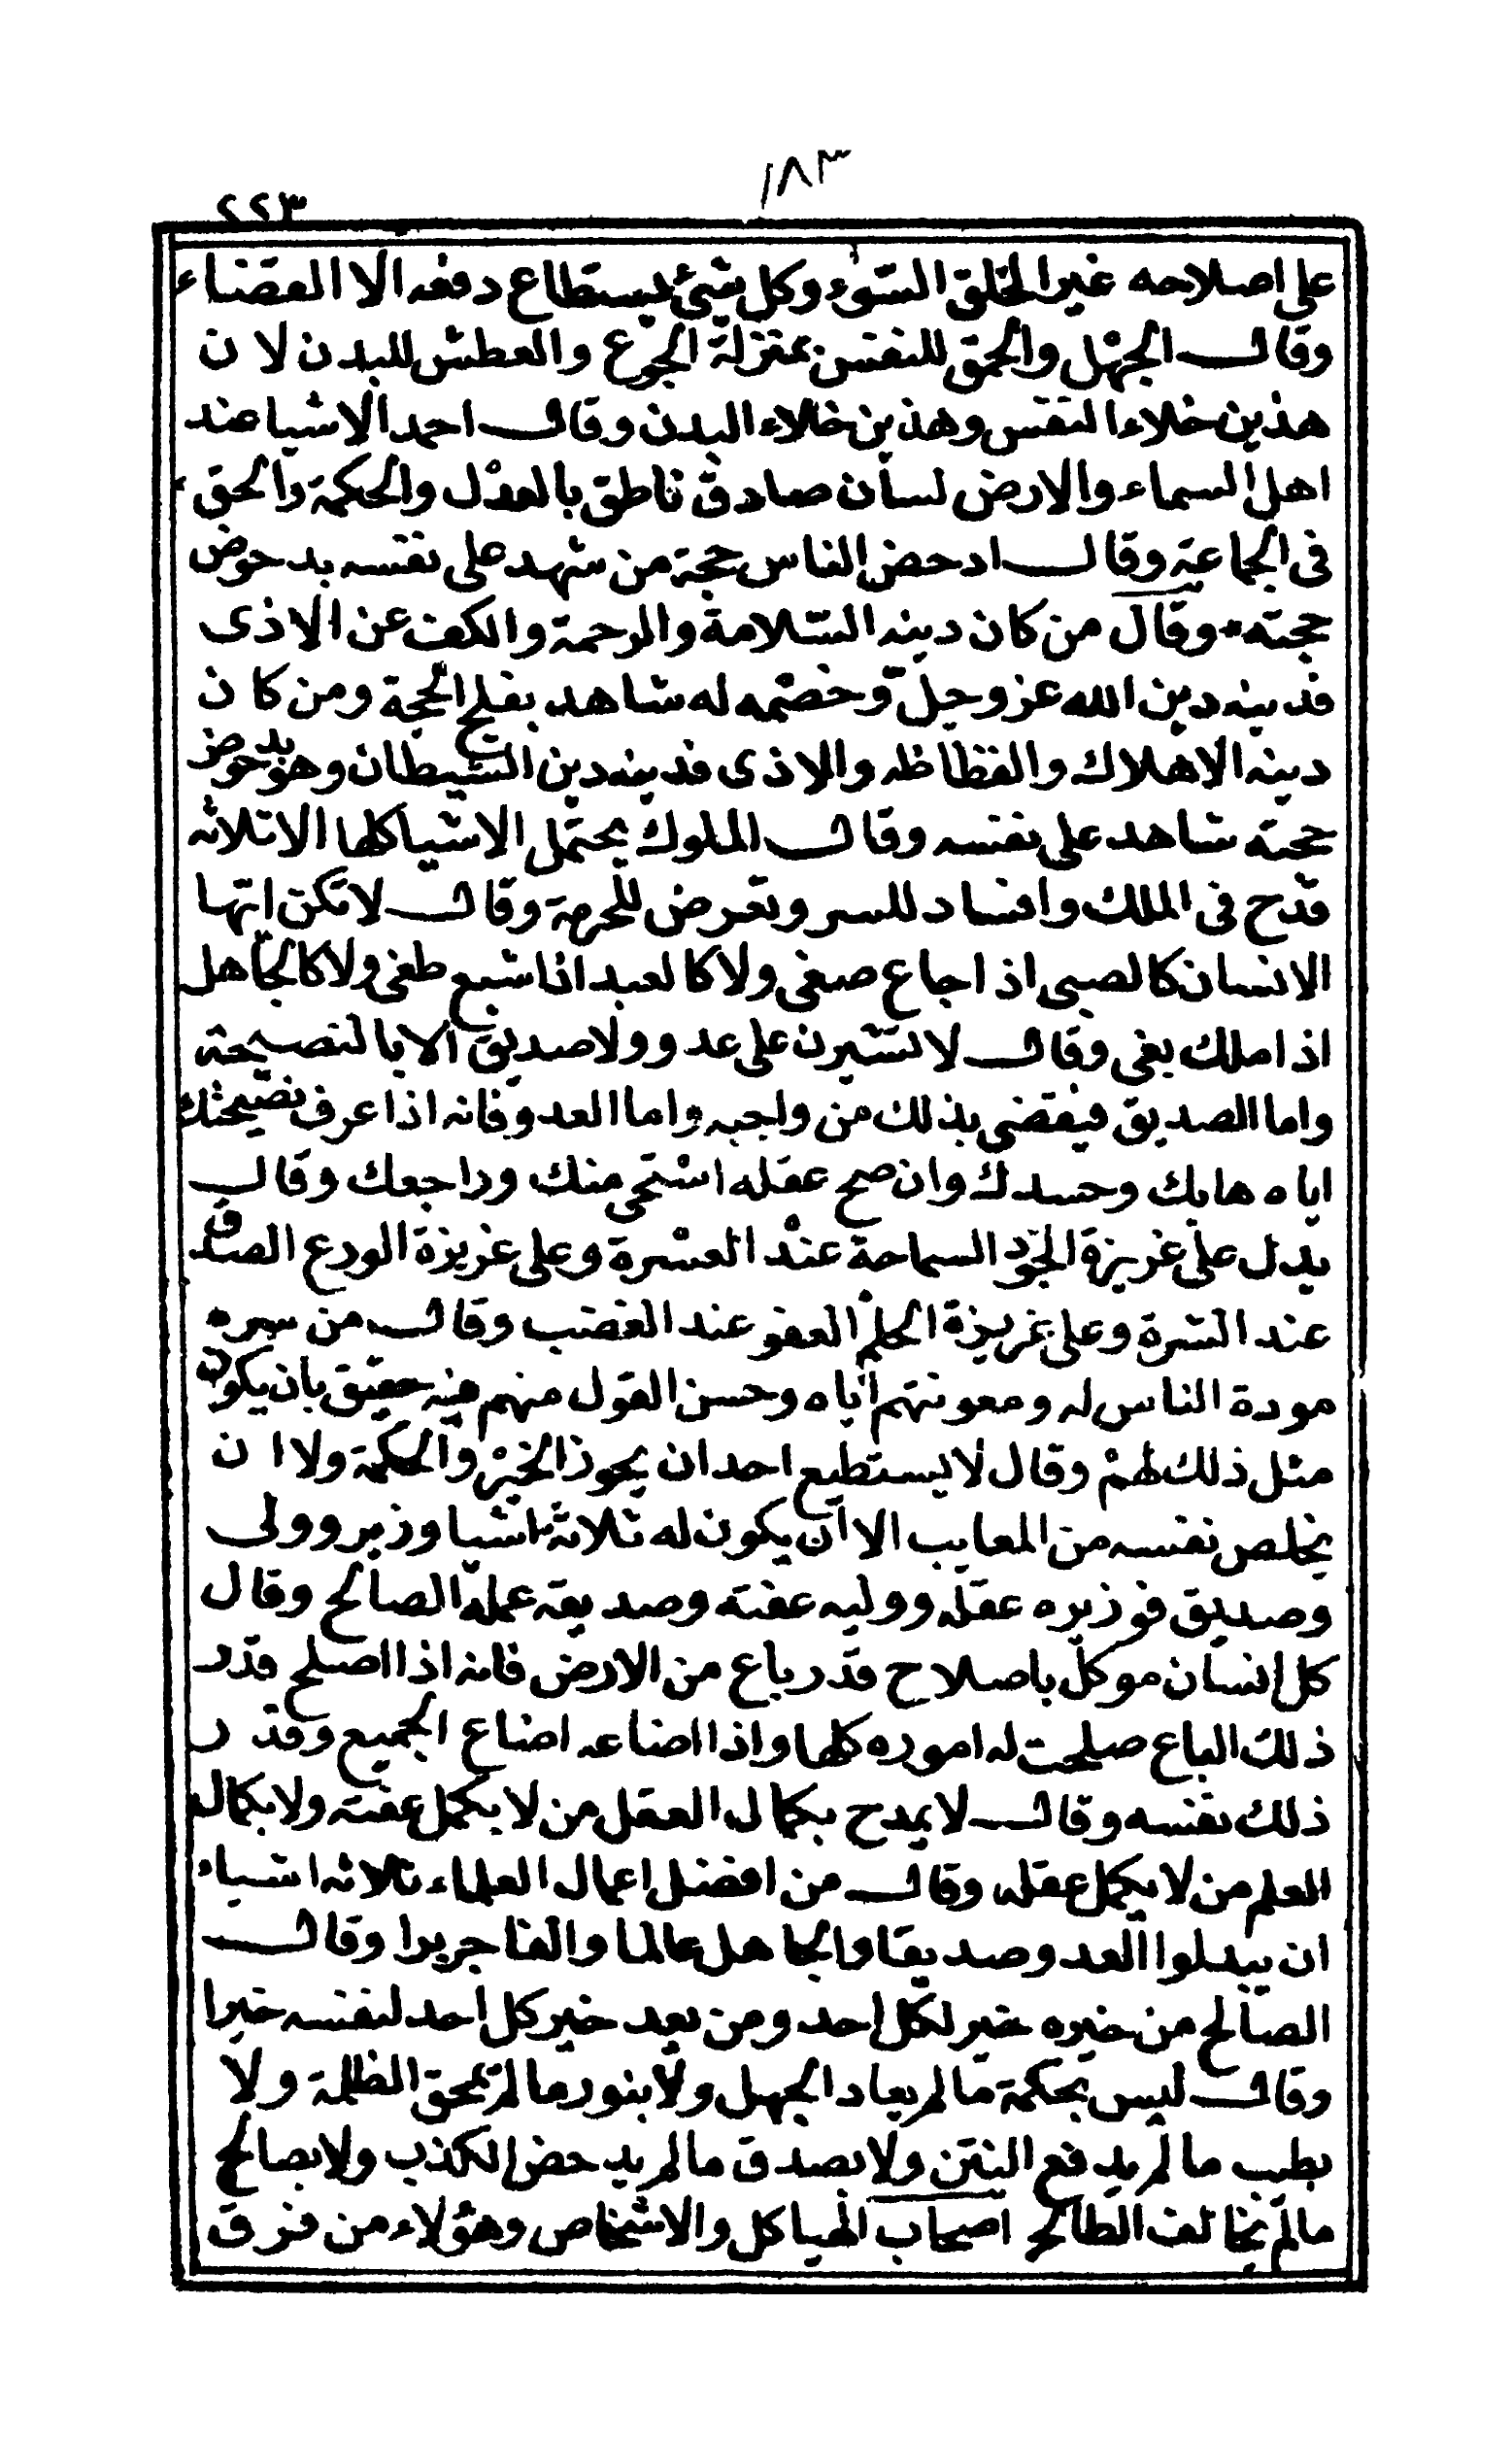 ١٨٣
٢٢٣
على اصلاحه غير الخلق السوء وكل شئ يستطاع دفعه الا القضاء
وقال الجهل والحمق للنفس بمنزلة الجوع والعطش للبدن لان
هذين خلاء النفس وهذين خلاء البدن وقال احمد الاشيا عند
اهل السماء والارض لسان صادق ناطق بالعدل والحكمة والحق
فى الجماعة وقال ادحض الناس حجة من شهد على نفسه بدحوض
حجته وقال من كان دينه السلامة والرحمة والكف عن الاذى
فدينه دين الله عز وجل وخصمه له شاهد بفلج الحجة ومن كان
دينه الاهلاك والفظاظه والاذى فدينه دين الشيطان وهو بدحوض
حجته شاهد على نفسه وقال الملوك يحتمل الاشيا كلها الا ثلاثه
قدح فى الملك وافساد للسر وتعرض للحرمة وقال لا تكن ايها
الانسان كالصبى اذ اجاع صغى ولا كالعبد اذا شبع طغى ولا كالجاهل
اذا ملك بغى وقال لا تشيرن على عدو ولا صديق الا بالنصيحة
واما الصديق فيقضى بذلك من واجبه واما العدو فانه اذا عرف نصيحتك
اياه هابك وحسدك وان صح عقله استحى منك وراجعك وقال
يدل على غريزة الجود السماحة عند العسرة وعلى غريزة الورع الصدق
عند الشرة وعلى غريزة الحلم العفو عند الغضب وقال من سره
مودة الناس له ومعونتهم اياه وحسن القول منهم فيه حقيق بان يكون
مثل ذلك لهم وقال لا يستطيع احد ان يحوز الخير والحكمة ولا ان
يخلص نفسه من المعايب الا ان يكون له ثلاثة اشيا وزير وولى
وصديق فوزيره عقله ووليه عفته وصديقه عمله الصالح وقال
كل انسان موكل باصلاح قدر باع من الارض فانه اذا اصلح قدر
ذلك الباع صلحت له اموره كلها واذا اضاعه اضاع الجميع وقدر
ذلك نفسه وقال لا يمدح بكمال العقل من لا يكمل عفته ولا بكمال
العلم من لا يكمل عقله وقال من افضل اعمال العلماء ثلاثه اشياء
ان يبدلوا العدو صديقا والجاهل عالما والفاجر برا وقال
الصالح من خيره خير لكل احد ومن يعد خير كل احد لنفسه خيرا
وقال ليس بحكمة ما لم يعاد الجهل ولا بنور ما لم تمحق الظلمة ولا
بطب ما لم يدفع النتن ولا بصدق ما لم يدحض الكذب ولا بصالح
مالم يخالف الطالح اصحاب الهياكل والاشخاص وهؤلاء من فرق